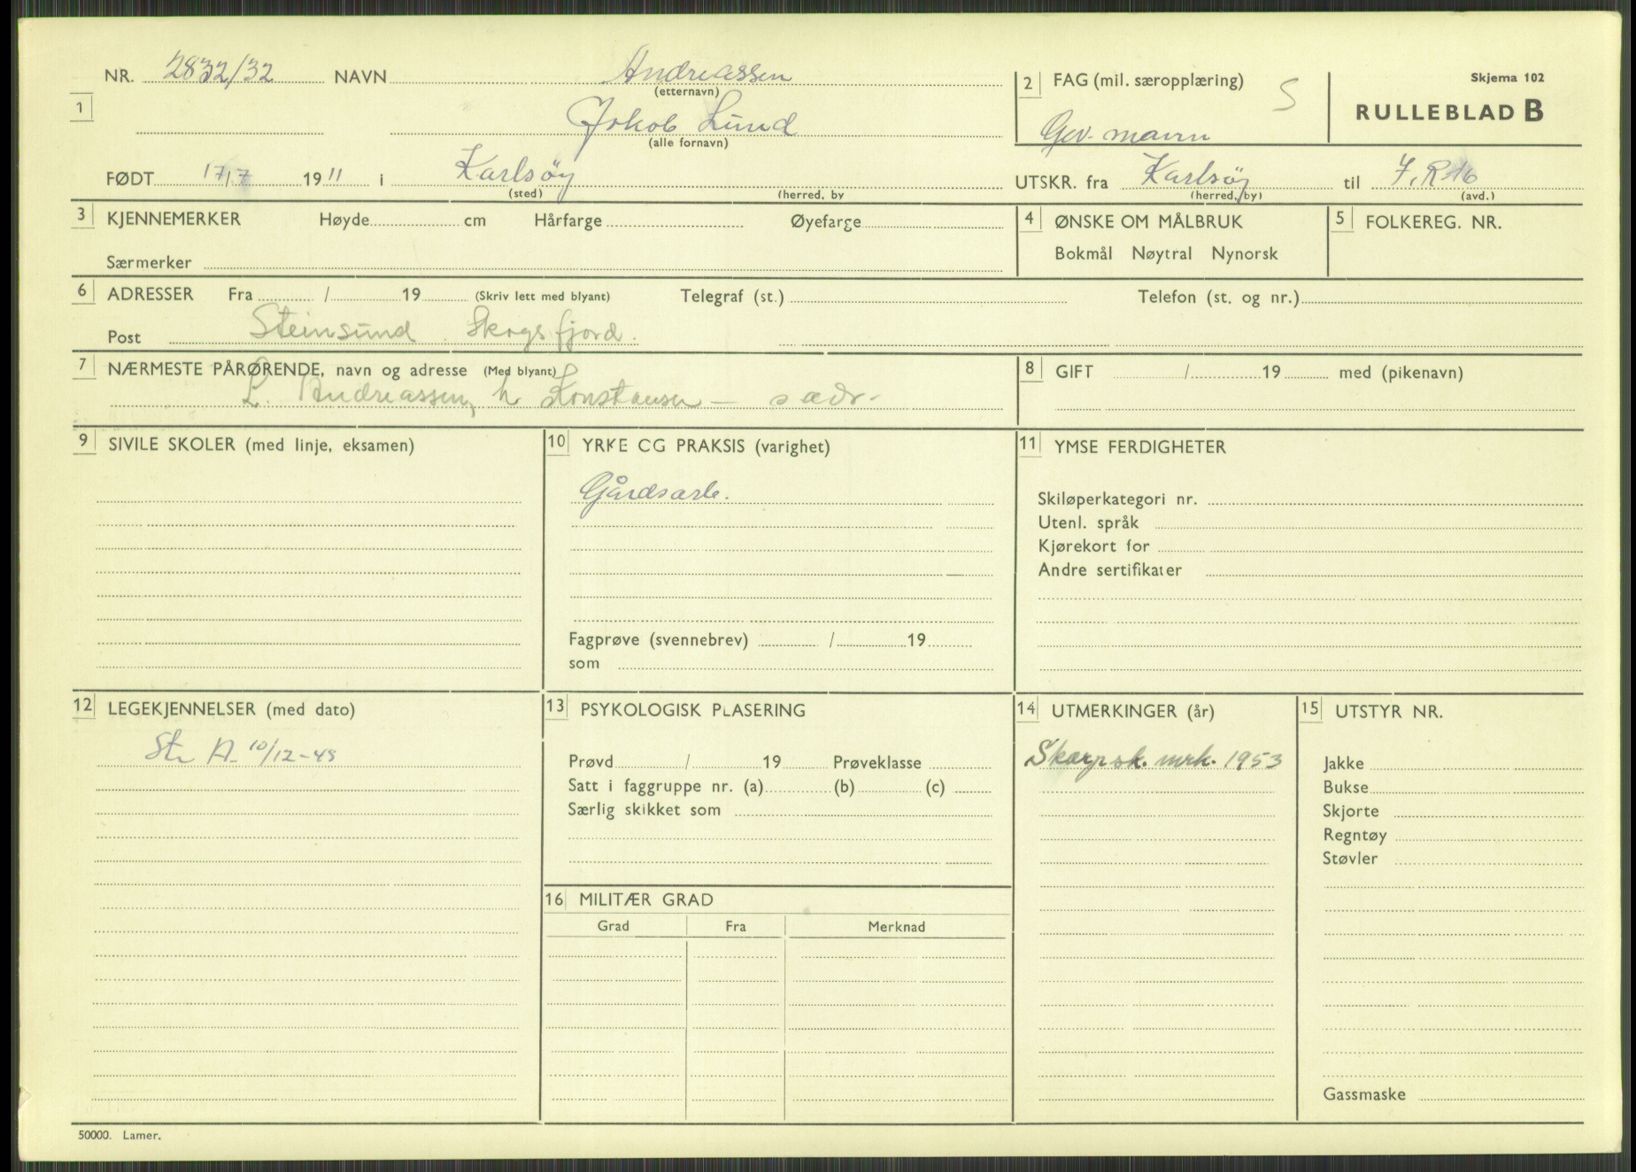 NR. 2832/32 NAVN Andreassen
(etternavn)
1
Jakob Lund
(alle fornavn)
FØDT 17/7 1911 i Karlsöy
(sted) (herred, by
2 FAG (mil. særopplæring) S
Gev. mann
Skjema 102
RULLEBLAD B
UTSKR. fra Karlsöy til I.R. 16
(herred, by) (avd.)
3 KJENNEMERKER Høyde cm Hårfarge Øyefarge
Særmerker
4 ØNSKE OM MÅLBRUK
Bokmål Nøytral Nynorsk
5 FOLKEREG. NR.
6 ADRESSER Fra / 19 (Skriv lett med blyant) Telegraf (st.) Telefon (st. og nr.)
Post Steinsund Skogsfjord.
7 NÆRMESTE PÅRØRENDE, navn og adresse (Med blyant)
L. Andreassen, h Konstanse — s adr.
8 GIFT / 19 med (pikenavn)
9 SIVILE SKOLER (med linje, eksamen)
10 YRKE CG PRAKSIS (varighet)
Gårdsarb.
Fagprøve (svennebrev) / 19
som
11 YMSE FERDIGHETER
Skiløperkategori nr.
Utenl. språk
Kjørekort for
Andre sertifikater
12 LEGEKJENNELSER (med dato)
St. A 10/12-49
13 PSYKOLOGISK PLASERING
Prøvd / 19 Prøveklasse
Satt i faggruppe nr. (a) (b) (c)
Særlig skikket som
14 UTMERKINGER (år)
Skarpsk. mrk. 1953
15 UTSTYR NR.
Jakke
Bukse
Skjorte
Regntøy
Støvler
Gassmaske
16 MILITÆR GRAD
Grad Fra Merknad
50000. Lamer.